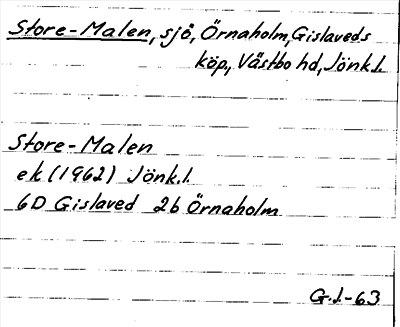 Store-Malen, sjö, Örnaholm, Gislaveds
köp., Västbo hd, Jönk.l.
Store-Malen
ek (1962) Jönk.l.
6D Gislaved 2b Örnaholm
G.l.-63